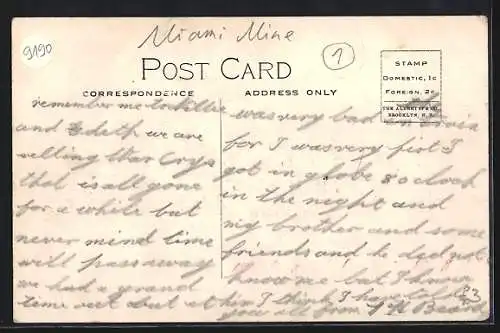 9190
Miami Mine
1
POST CARD
CORRESPONDENCE
ADDRESS ONLY
STAMP
DOMESTIC, 1c
FOREIGN, 2c
THE ALBERTYPE CO.
BROOKLYN, N. Y.
remember me to Willie
and Edeth we are
that is all gone
for a while but
never mind time
will pass away
we had a grand
time
was very bad on
for I was very
got in globe 8 o clock
in the night and
my brother and some
friends and he did not
know me but I know
him I think I have to
you all from
23